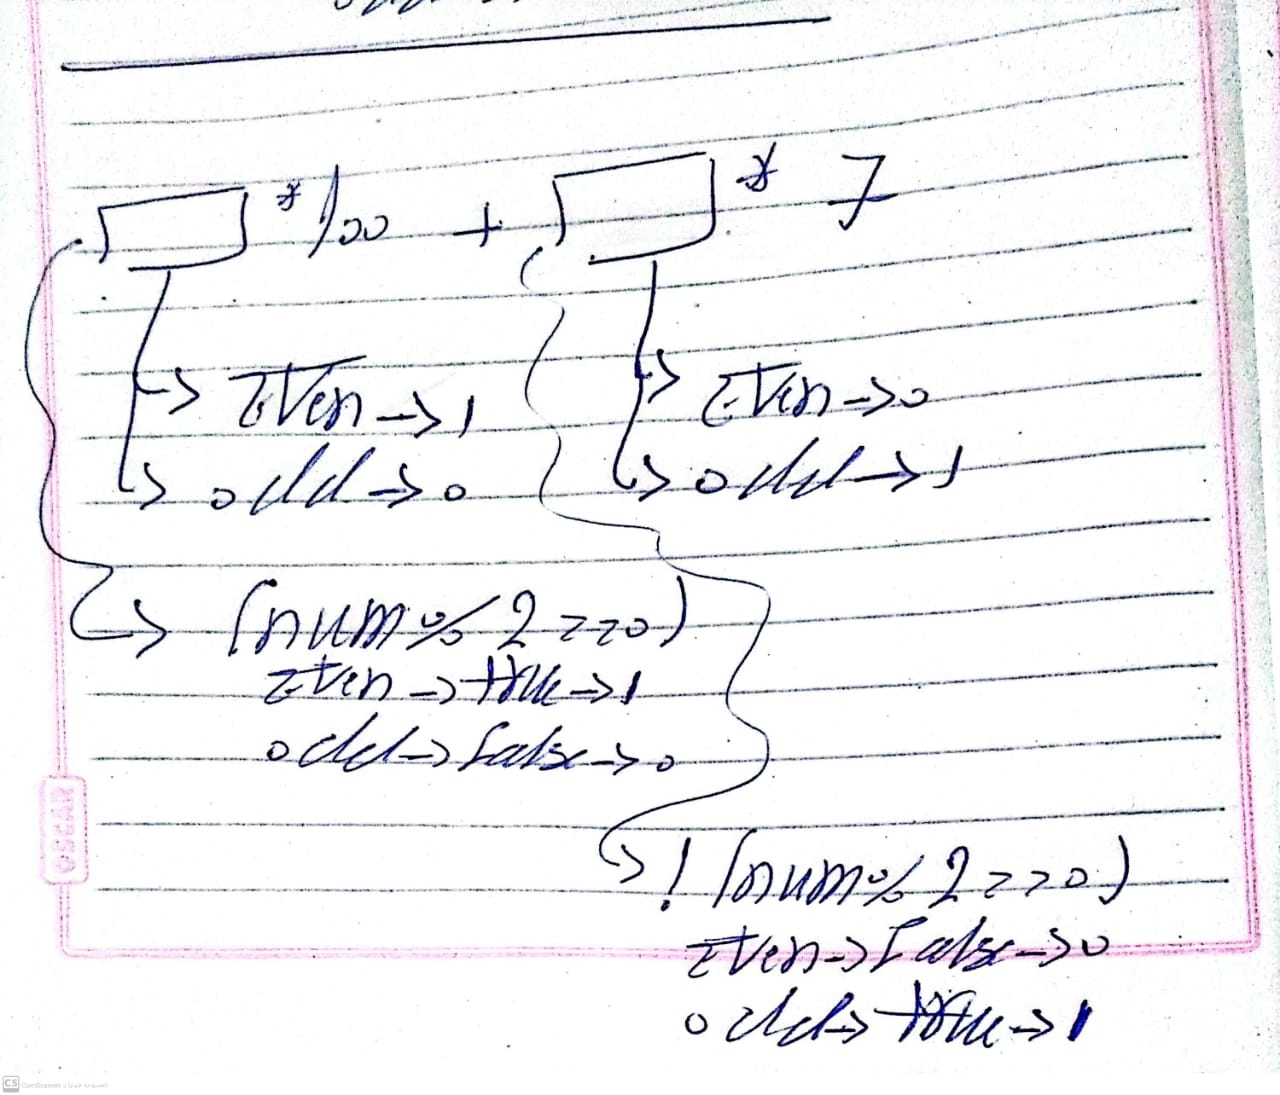 * 100 + * 7
Even -> 1
odd -> 0
Even -> 0
odd -> 1
(num % 2 == 0)
Even -> true -> 1
odd -> false -> 0
! (num % 2 == 0)
Even -> False -> 0
odd -> true -> 1
OSCAR
CS CamScanner